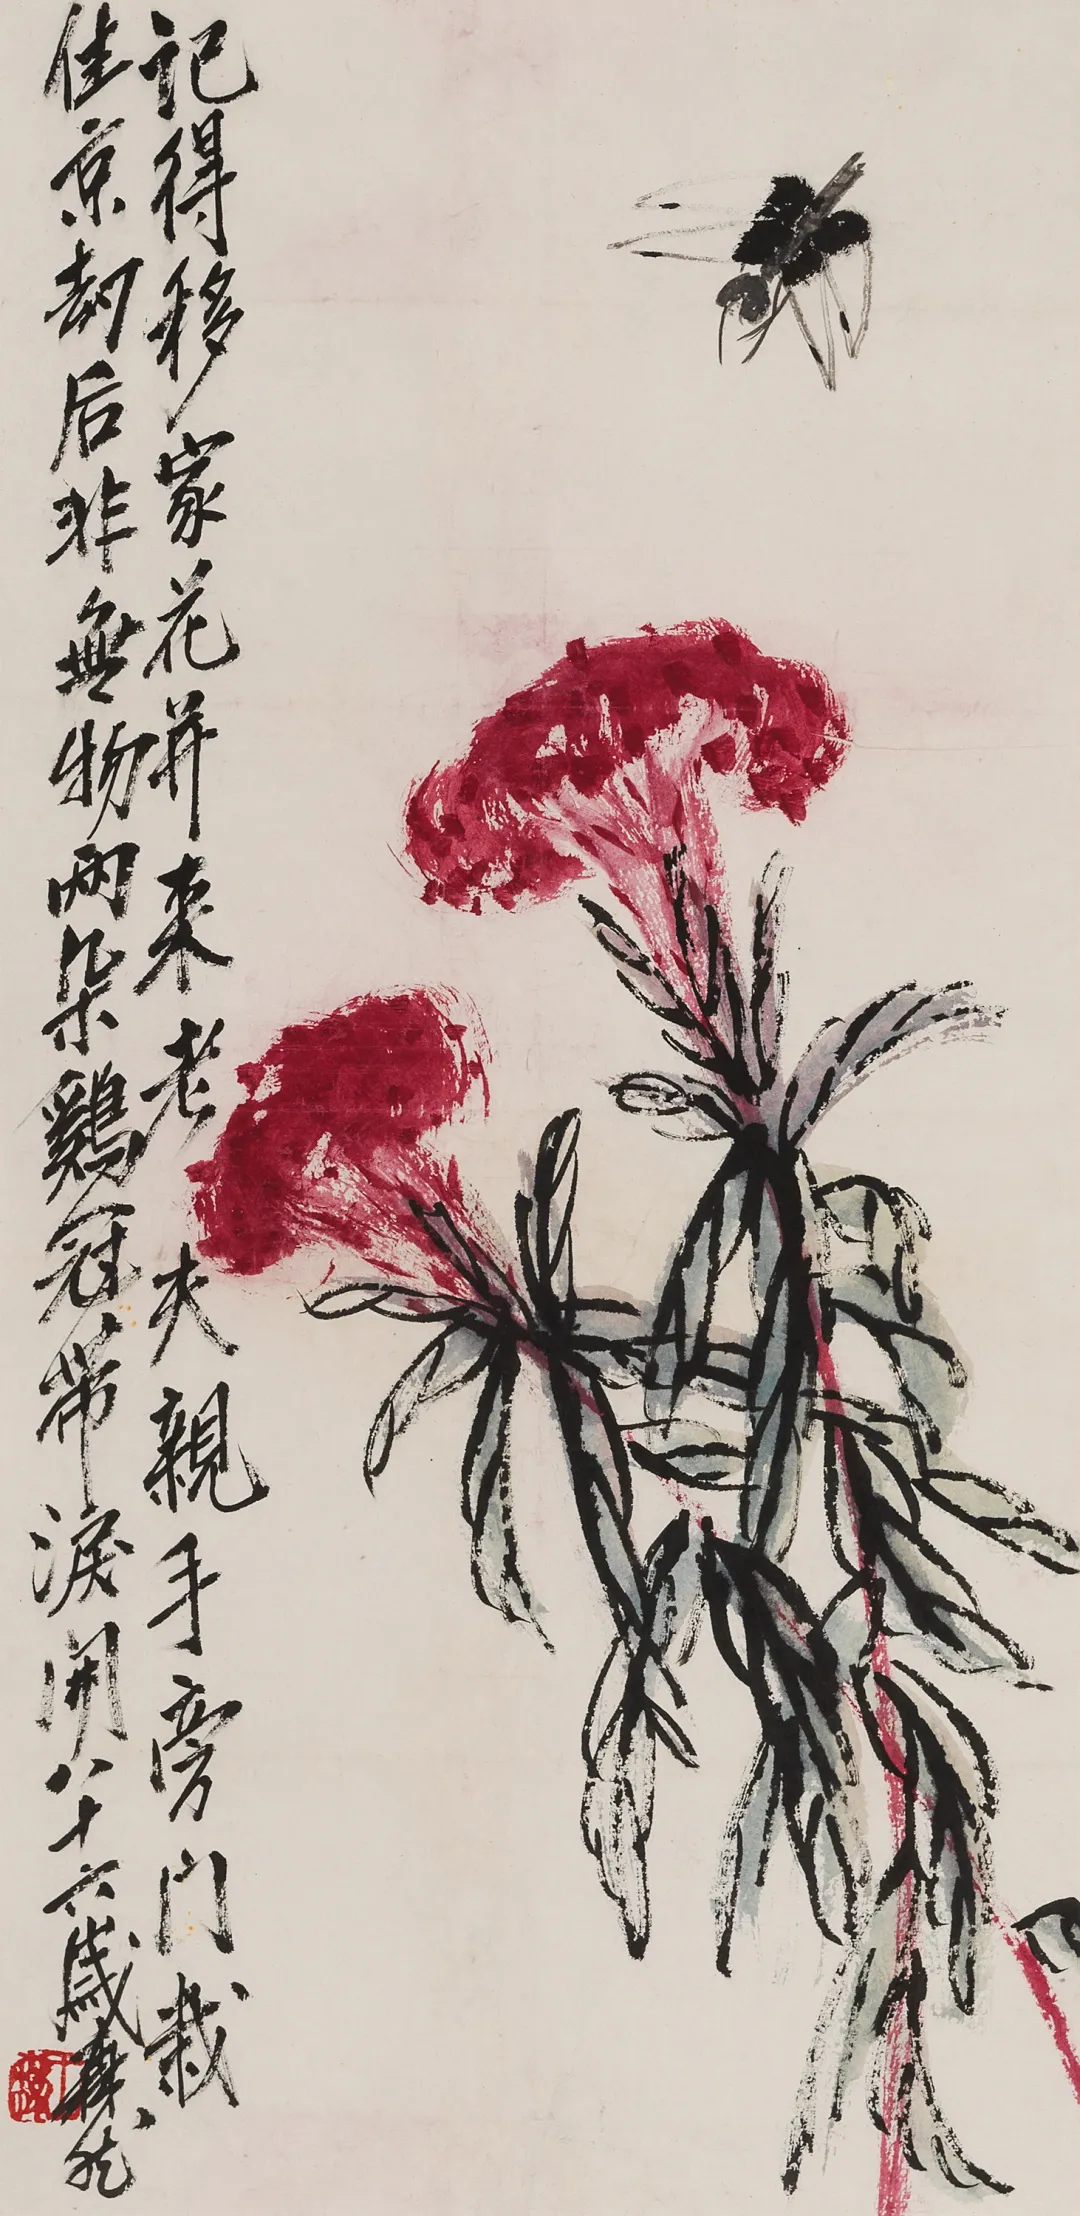 記得移家花并來老夫親手旁門栽
佳京劫后非無物兩朵鷄冠帶淚開八十六歲